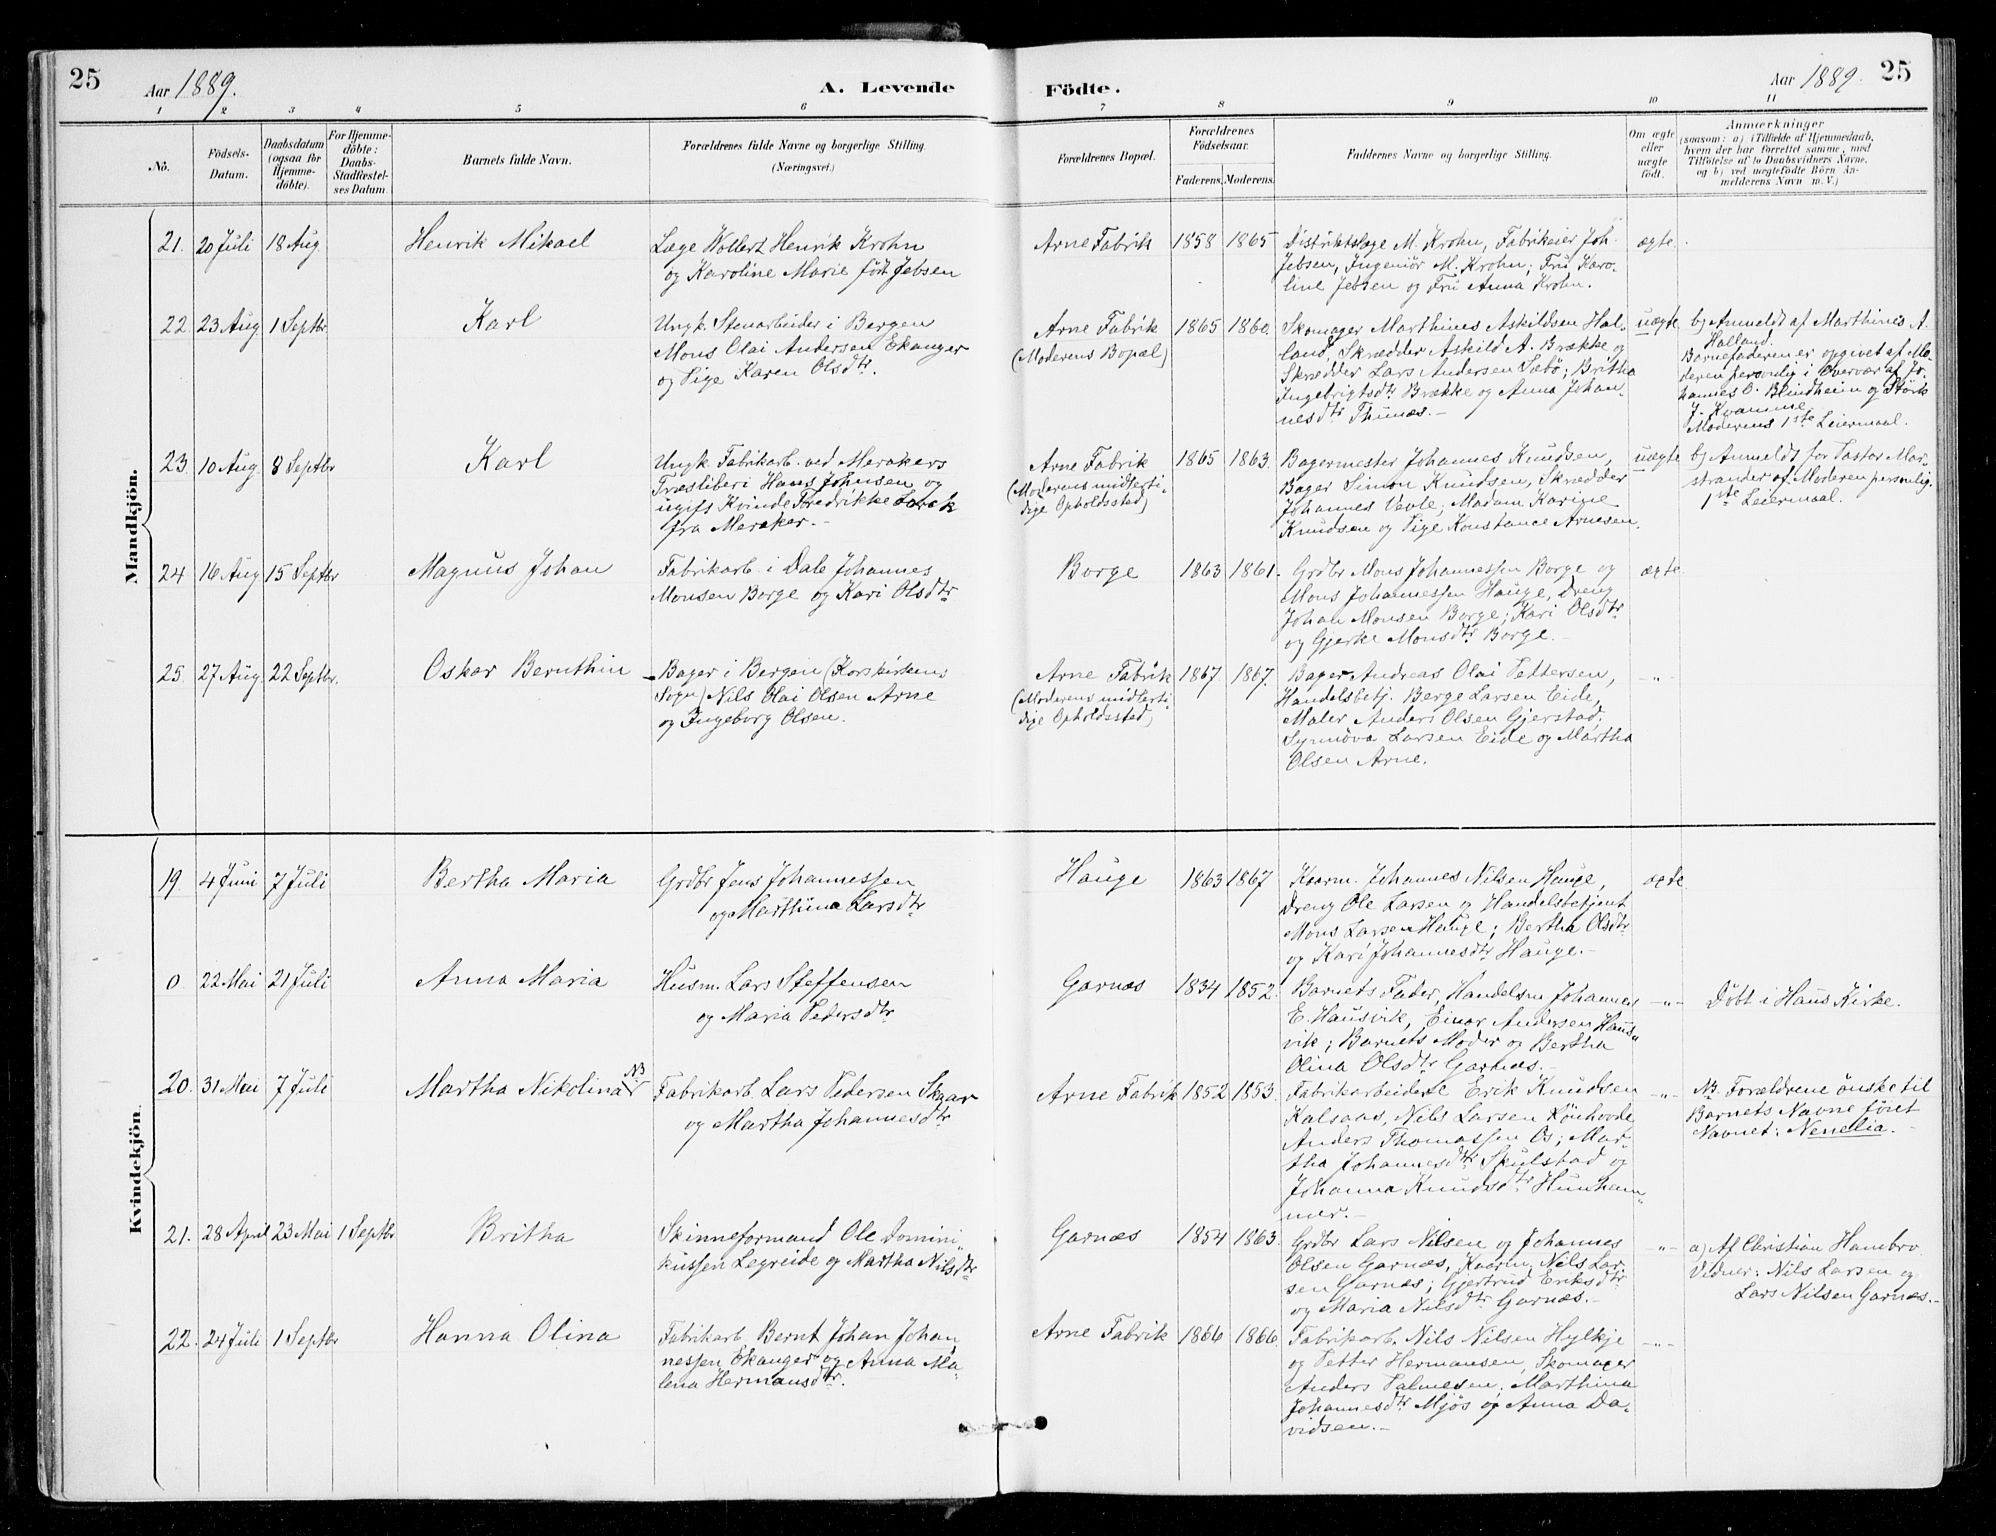 25
Aar 1889.
A. Levende
Födte.
Aar 1889.
25
1 2 3 4 5 6 7 8 9 10 11
No.
Födsels-
Datum.
Daabsdatum
(ogsaa for
Hjemme-
døbte).
For Hjemme-
döbte:
Daabs-
Stadfæstel-
ses Datum.
Barnets fulde Navn.
Forældrenes fulde Navne og borgerlige Stilling.
(Næringsvei.)
Forældrenes Bopæl.
Forældrenes
Födselsaar.
Faderens. Moderens.
Faddernes Navne og borgerlige Stilling.
Om ægte
eller
uægte
födt.
Anmærkninger
(saasom: a) i Tilfælde af Hjemmedaab,
hvem der har forrettet samme, med
Tilföielse af to Daabsvidners Navne,
og b) ved uægtefödte Börn An-
melderens Navn m. V.)
Mandkjön.
21. 20 Juli 18 Aug.
Henrik Mikael
Læge Wollert Henrik Krohn
og Karoline Marie født Jebsen
Arne Fabrik 1858 1865
Distriktslæge M. Krohn, Fabrikeier Joh.
Jebsen, Ingeniør M. Krohn; Fru Karo-
line Jebsen og Fru Anna Krohn.
ægte
22. 23 Aug. 1 Septbr.
Karl
Ungk. Stenarbeider i Bergen
Mons Olai Andersen Ekanger
og Pige Karen Olsdtr.
Arne Fabrik
(Moderens Bopæl)
1865 1860.
Skomager Marthines Askildsen Hal-
land, Skrædder Askild A. Brække og
Skrædder Lars Andersen Sæbö; Britha
Ingebrigtsdtr Brække og Anna Johan-
nesdtr Thunæs.-
uægte
b) Anmeldt af Marthinis A.
Halland.
Barnefaderen er opgivet af Mo-
deren personlig i Overvær af Jo-
hannes O. Blindheim og Störk
J. Kvamme
Moderens 1ste Leiermaal.
23. 10 Aug. 8 Septbr
Karl
Ungk. Fabrikarb. ved Merakers
Træsliberi Hans Johnsen og
ugift Kvinde Fredrikke
fra Meraker.-
Arne Fabrik
(Moderens midlerti-
dige Opholdssted)
1865 1863.
Bagermester Johannes Knudsen,
Bager Simon Knudsen, Skrædder
Johannes Vevle; Madam Karine
Knudsen og Pige Konstance Arnesen.
uægte
b) Anmeldt for Pastor Mar-
strander af Moderen personlig.
1ste Leiermaal.
24 16 Aug 15 Septbr
Magnus Johan
Fabrikarb. i Dale Johannes
Monsen Borge og Kari Olsdtr
Borge 1863 1861.
Grdbr Mons Johannessen Borge og
Mons Johannessen Hauge, Dreng
Johan Monsen Borge; Kari Olsdtr
og Gjerke Monsdtr Borge.-
ægte
25. 27 Aug 22 Septbr.
Oskar Bernthin
Bager i Bergen (Korskirkens
Sogn) Nils Olai Olsen Arne
og Ingeborg Olsen.
Arne Fabrik
(Moderens midlerti-
dige Opholdssted)
1867 1867.
Bager Andreas Olai Pettersen,
Handelsbetj. Berge Larsen Eide,
Maler Anders Olsen Gjerstad;
Synnöva Larsen Eide og Martha
Olsen Arne.
-"-
Kvindekjön.
19. 4 Juni 7 Juli
Bertha Maria
Grdbr Jens Johannessen
og Marthina Larsdtr
Hauge 1863 1867
Kaarm. Johannes Nilsen Hauge,
Dreng Ole Larsen og Handelsbetjent
Mons Larsen Hauge; Bertha Olsdtr
og Kari Johannesdtr Hauge.-
ægte
0. 22 Mai 21 Juli
Anna Maria
Husm. Lars Steffensen
og Maria Pedersdtr
Garnæs 1834 1852.
Barnets Fader, Handelsm Johannes
E. Hausvik, Einar Andersen Haus-
vik; Barnets Moder og Bertha
Olina Olsdtr Garnæs.-
-"-
Döbt i Haus Kirke.
20. 31 Mai 7 Juli
Martha Nikolina NB
Fabrikarb. Lars Pedersen Skaar
og Martha Johannesdtr
Arne Fabrik 1852 1853.
Fabrikarbeidere Erik Knudsen
Kalsaas, Nils Larsen Könhovde
Anders Thomassen Os; Mar-
tha Johannesdtr Spulstad og
Johanna Knudsdtr Hunham-
mer.-
-"-
NB. Forældrene önske til
Barnets Navne föiet
Navnet: Nenelia.-
21. 28 April 23 Mai 1 Septbr
Britha
Skinneformand Ole Domini-
kussen Legreide og Martha Nilsdtr
Garnæs 1854 1863.
Grdbr Lars Nilsen og Johannes
Olsen Garnæs, Kaarm. Nils Lar-
sen Garnæs; Gjertrud Eriksdtr
og Maria Nilsdtr Garnæs.-
-"-
a) Af Christian Hambro.
Vidner: Nils Larsen og
Lars Nilsen Garnæs.-
22. 24 Juli 1 Septbr
Hanna Olina
Fabrikarb. Bernt Johan Johan-
nessen Ekanger og Anna Ma-
lena Hermansdtr.
Arne Fabrik 1866 1866.
Fabrikarb. Nils Nilsen Hylkje
og Petter Hermansen, Skomager
Anders Palmesen; Marthina
Johannesdtr Mjös og Anna Da-
vidsen.-
-"-